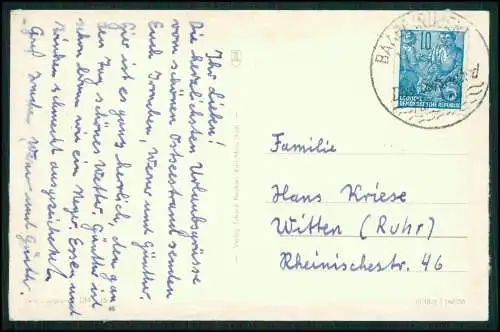 Ihr Lieben!
Die herzlichsten Urlaubsgrüsse
vom schönen Ostseestrand senden
Euch Irmchen, Werner und Günther.
Hier ist es ganz herrlich, den gan=
zen Tag schönes Wetter. Günther ist
schon braun wie ein Neger. Essen und
Trinken schmeckt ausgezeichnet.
Gruß Werner und Günther.
10
DEUTSCHE
DEMOKRATISCHE REPUBLIK
Familie
Hans Kriese
Witten (Ruhr)
Rheinischestr. 46